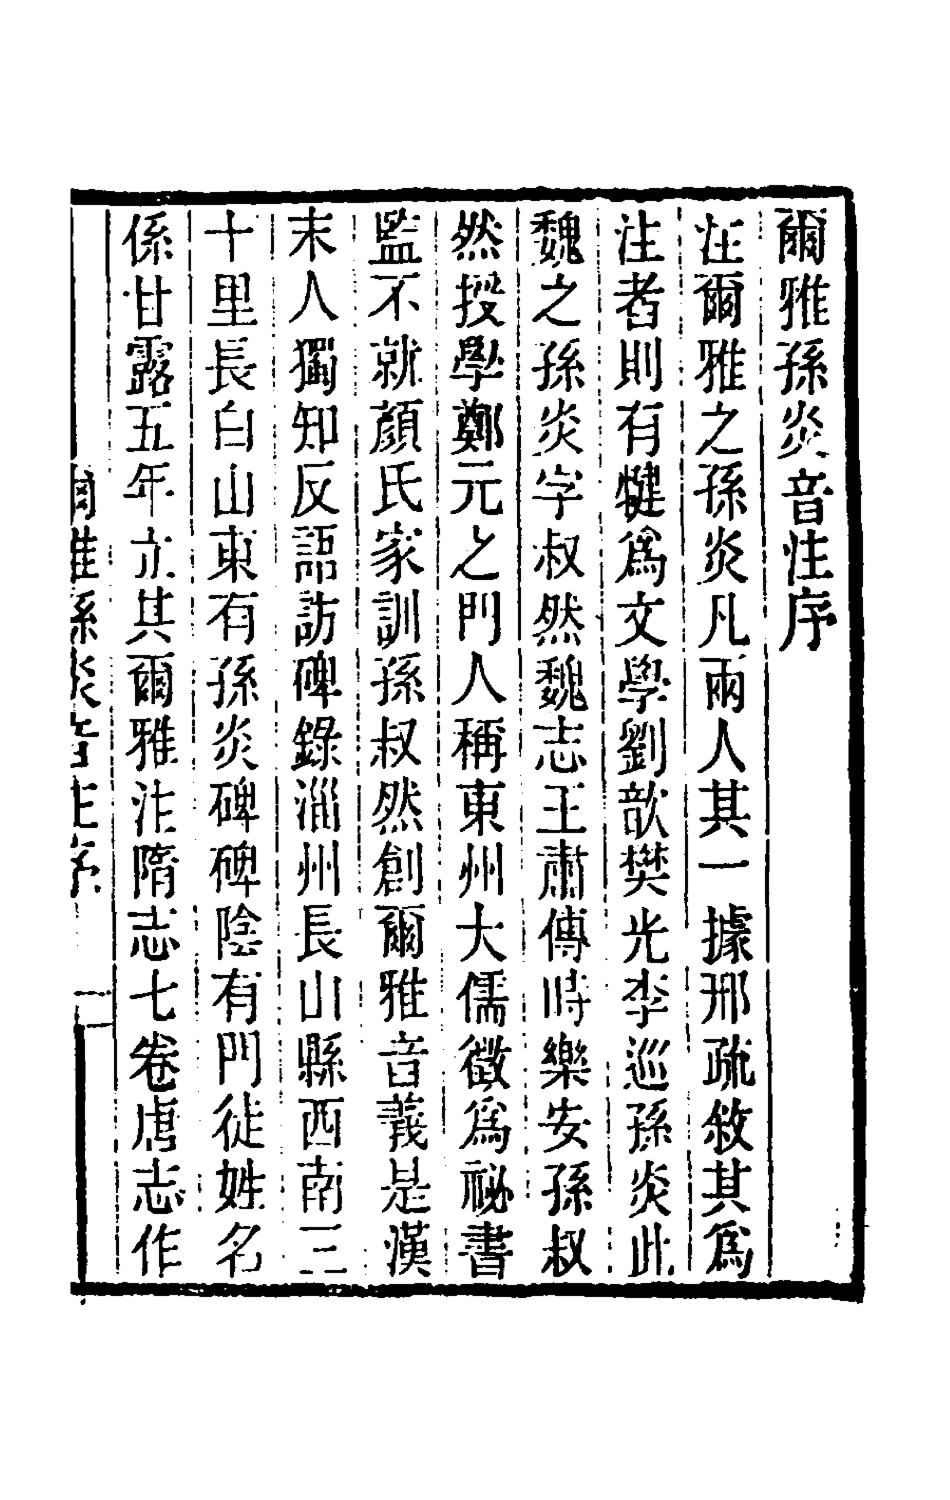 爾雅孫炎音注序
注爾雅之孫炎凡兩人其一據邢疏敘其爲
注者則有犍爲文學劉歆樊光李巡孫炎此
魏之孫炎字叔然魏志王肅傳時樂安孫叔
然授學鄭元之門人稱東州大儒徵爲祕書
監不就顏氏家訓孫叔然創爾雅音義是漢
末人獨知反語訪碑錄淄州長山縣西南三
十里長白山東有孫炎碑碑陰有門徒姓名
係甘露五年立其爾雅注隋志七卷唐志作
爾雅孫炎音注序
一